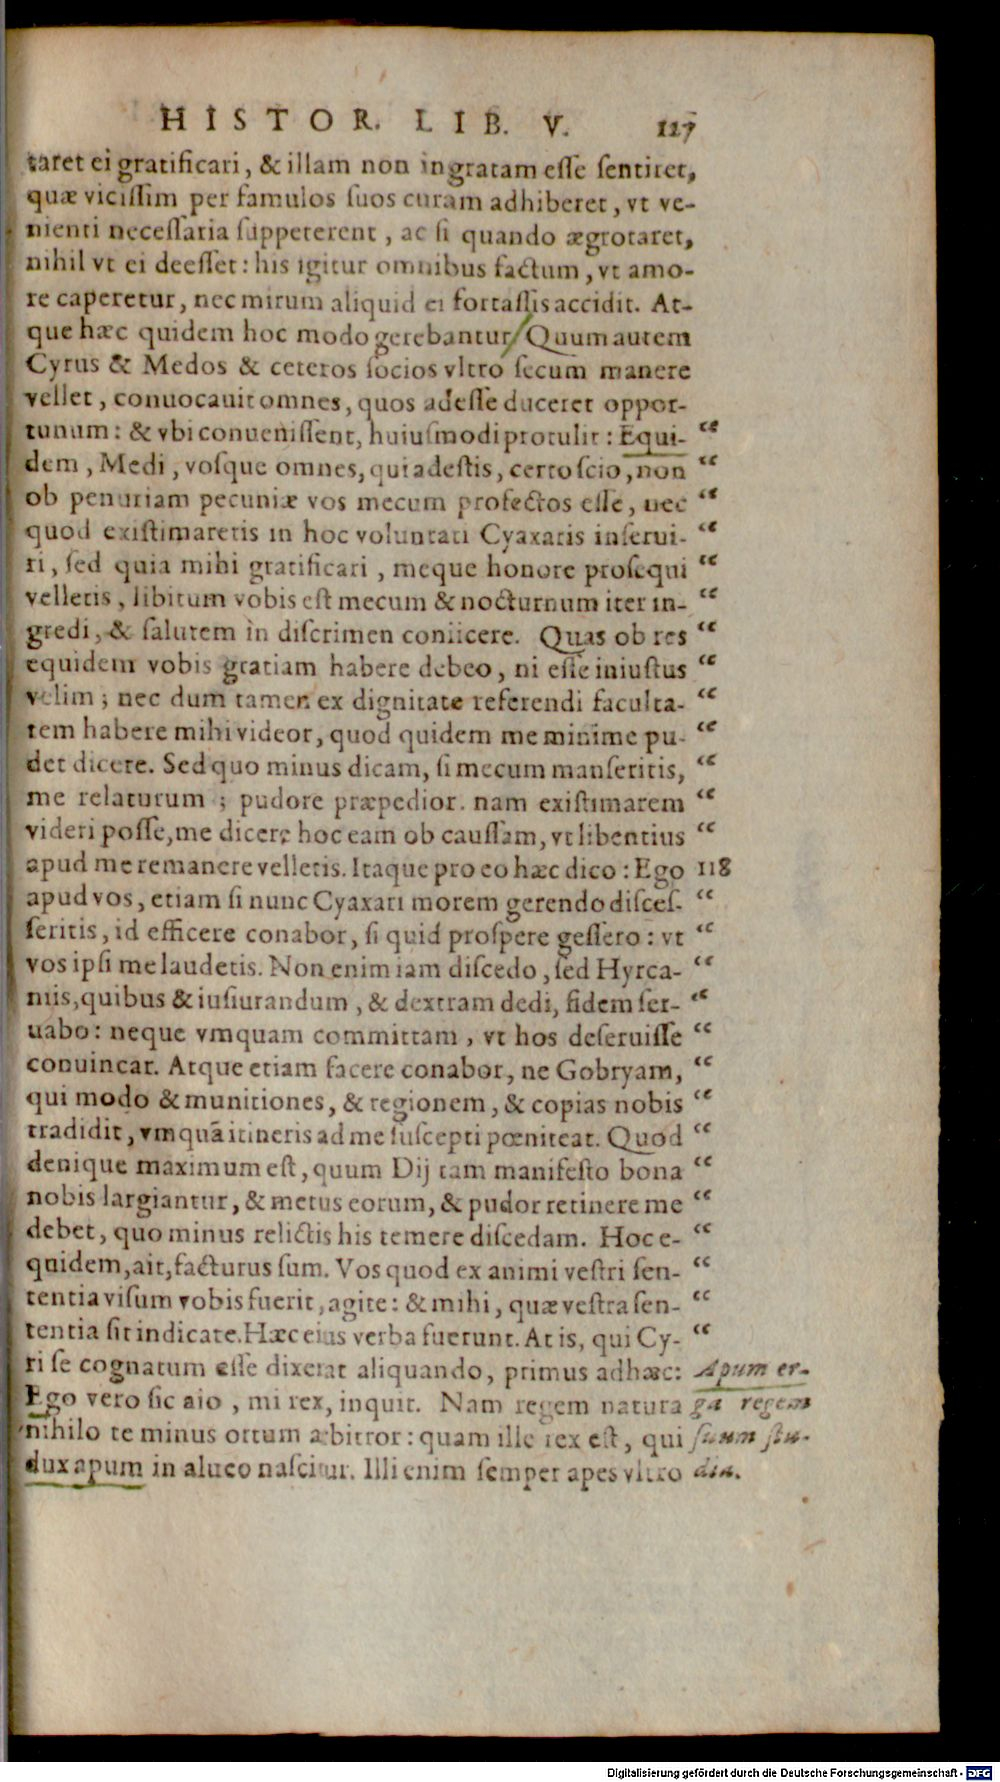 HISTOR. LIB. V. 127
taret ei gratificari, & illam non ingratam eſſe ſentiret,
quæ viciſſim per famulos ſuos curam adhiberet, vt ve-
nienti neceſſaria ſuppeterent, ac ſi quando ægrotaret,
nihil vt ei deeſſet: his igitur omnibus factum, vt amo-
re caperetur, nec mirum aliquid ei fortaſſis accidit. At-
que hæc quidem hoc modo gerebantur/Quum autem
Cyrus & Medos & ceteros ſocios vltro ſecum manere
vellet, conuocauit omnes, quos adeſſe duceret oppor-
tunum: & vbi conueniſſent, huiuſmodi protulit: Equi- “
dem, Medi, voſque omnes, qui adeſtis, certo ſcio, non “
ob penuriam pecuniæ vos mecum profectos eſſe, nec “
quod exiſtimaretis in hoc voluntati Cyaxaris inſerui- “
ri, ſed quia mihi gratificari, meque honore proſequi “
velletis, libitum vobis eſt mecum & nocturnum iter in- “
gredi, & ſalutem in diſcrimen coniicere. Quas ob res “
equidem vobis gratiam habere debeo, ni eſſe iniuſtus “
velim; nec dum tamen ex dignitate referendi faculta- “
tem habere mihi videor, quod quidem me minime pu- “
det dicere. Sed quo minus dicam, ſi mecum manſeritis, “
me relaturum; pudore præpedior. nam exiſtimarem “
videri poſſe, me dicere hoc eam ob cauſſam, vt libentius “
apud me remanere velletis. Itaque pro eo hæc dico: Ego 118
apud vos, etiam ſi nunc Cyaxari morem gerendo diſceſ- “
ſeritis, id efficere conabor, ſi quid proſpere geſſero: vt “
vos ipſi me laudetis. Non enim iam diſcedo, ſed Hyrca- “
niis, quibus & iuſiurandum, & dextram dedi, fidem ſer- “
uabo: neque vmquam committam, vt hos deſeruiſſe “
conuincar. Atque etiam facere conabor, ne Gobryam, “
qui modo & munitiones, & regionem, & copias nobis “
tradidit, vmquã itineris ad me ſuſcepti pœniteat. Quod “
denique maximum eſt, quum Dij tam manifeſto bona “
nobis largiantur, & metus eorum, & pudor retinere me “
debet, quo minus relictis his temere diſcedam. Hoc e- “
quidem, ait, facturus ſum. Vos quod ex animi veſtri ſen- “
tentia viſum vobis fuerit, agite: & mihi, quæ veſtra ſen- “
tentia ſit indicate. Hæc eius verba fuerunt. At is, qui Cy- “
ri ſe cognatum eſſe dixerat aliquando, primus ad hæc: Apum er-
Ego vero ſic aio, mi rex, inquit. Nam regem natura ga regem
nihilo te minus ortum arbitror: quam ille rex eſt, qui ſuum ſtu-
dux apum in alueo naſcitur. Illi enim ſemper apes vltro dia.
Digitalisierung gefördert durch die Deutsche Forschungsgemeinschaft - DFG